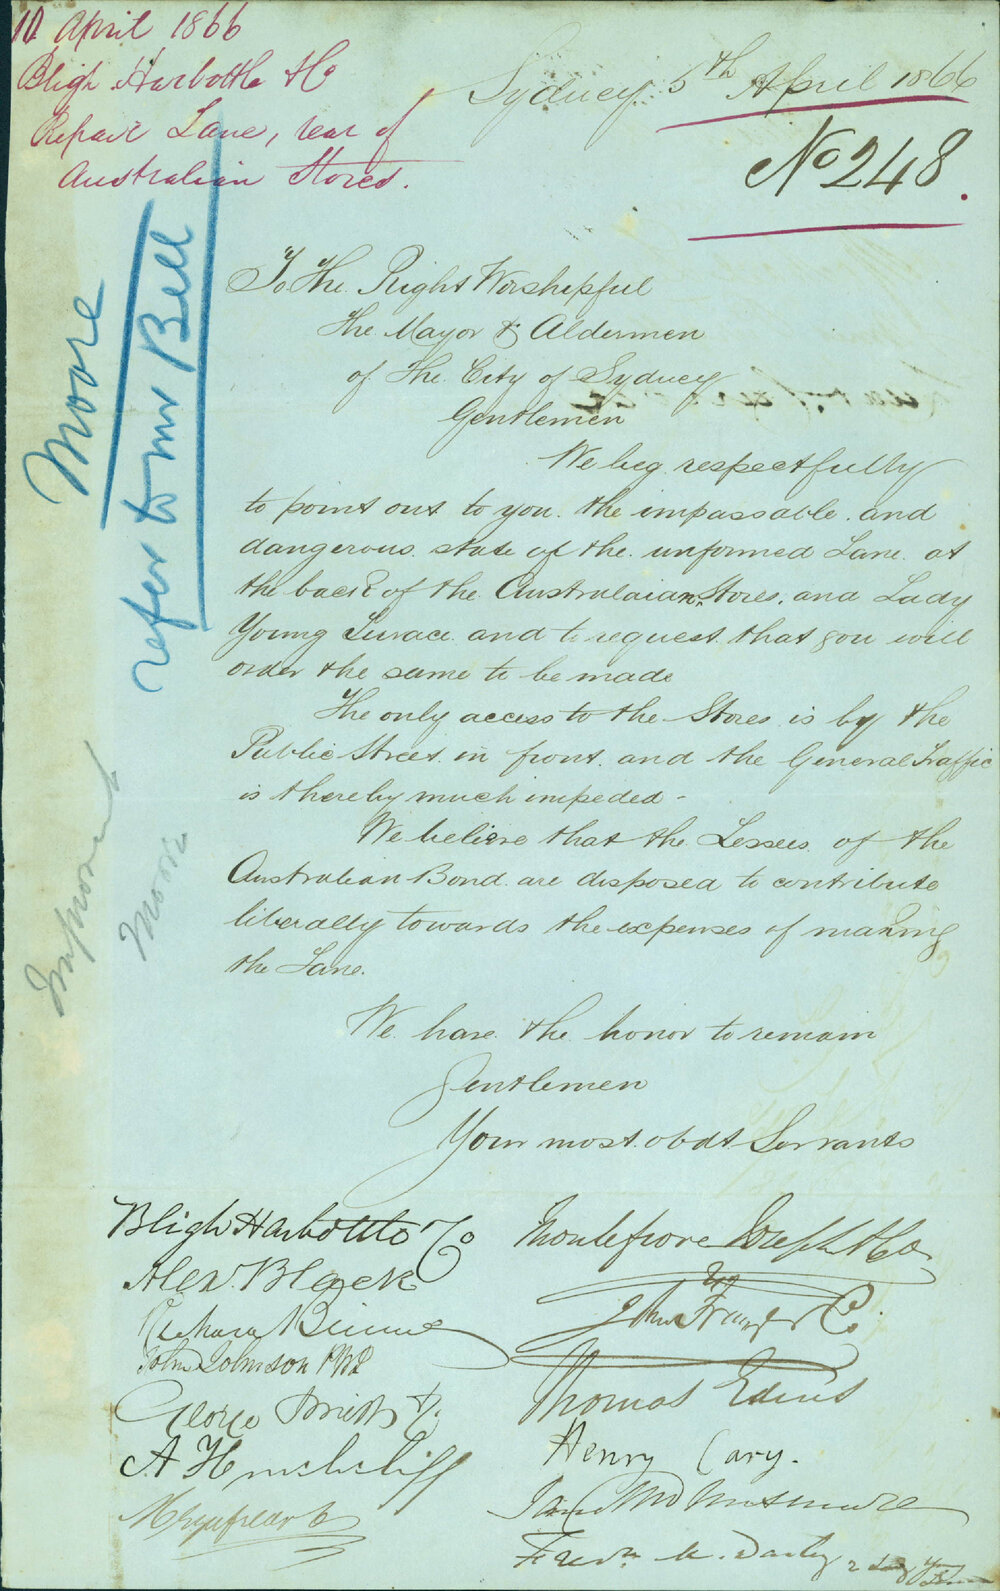 10 April 1866
Bligh Harbottle & Co
Repair Lane, rear of
Australian Stores.
Sydney 5th April 1866
No 248.
Moore
refer to Mr Bell
To The Right Worshipful
The Mayor & Aldermen
of The City of Sydney
Gentlemen
We beg respectfully
to point out to you the impassable and
dangerous state of the unformed Lane at
the back of the Australaian Stores, and Lady
Young Terrace and to request that you will
order the same to be made
The only access to the Stores is by the
Public Street in front and the General Traffic
is thereby much impeded -
We believe that the Lessees of the
Australian Bond are disposed to contribute
liberally towards the expenses of making
the Lane.
We have the honor to remain
Gentlemen
Your most obdt Servants
Moore
Bligh Harbottle & Co
Alexr Black
Richard Binnie
John Johnson
George Smith &
A Hinchcliff
Montefiore Joseph & Co
John Frazer & Co.
Thomas Edins
Henry Cary.
Fredk M. Darley